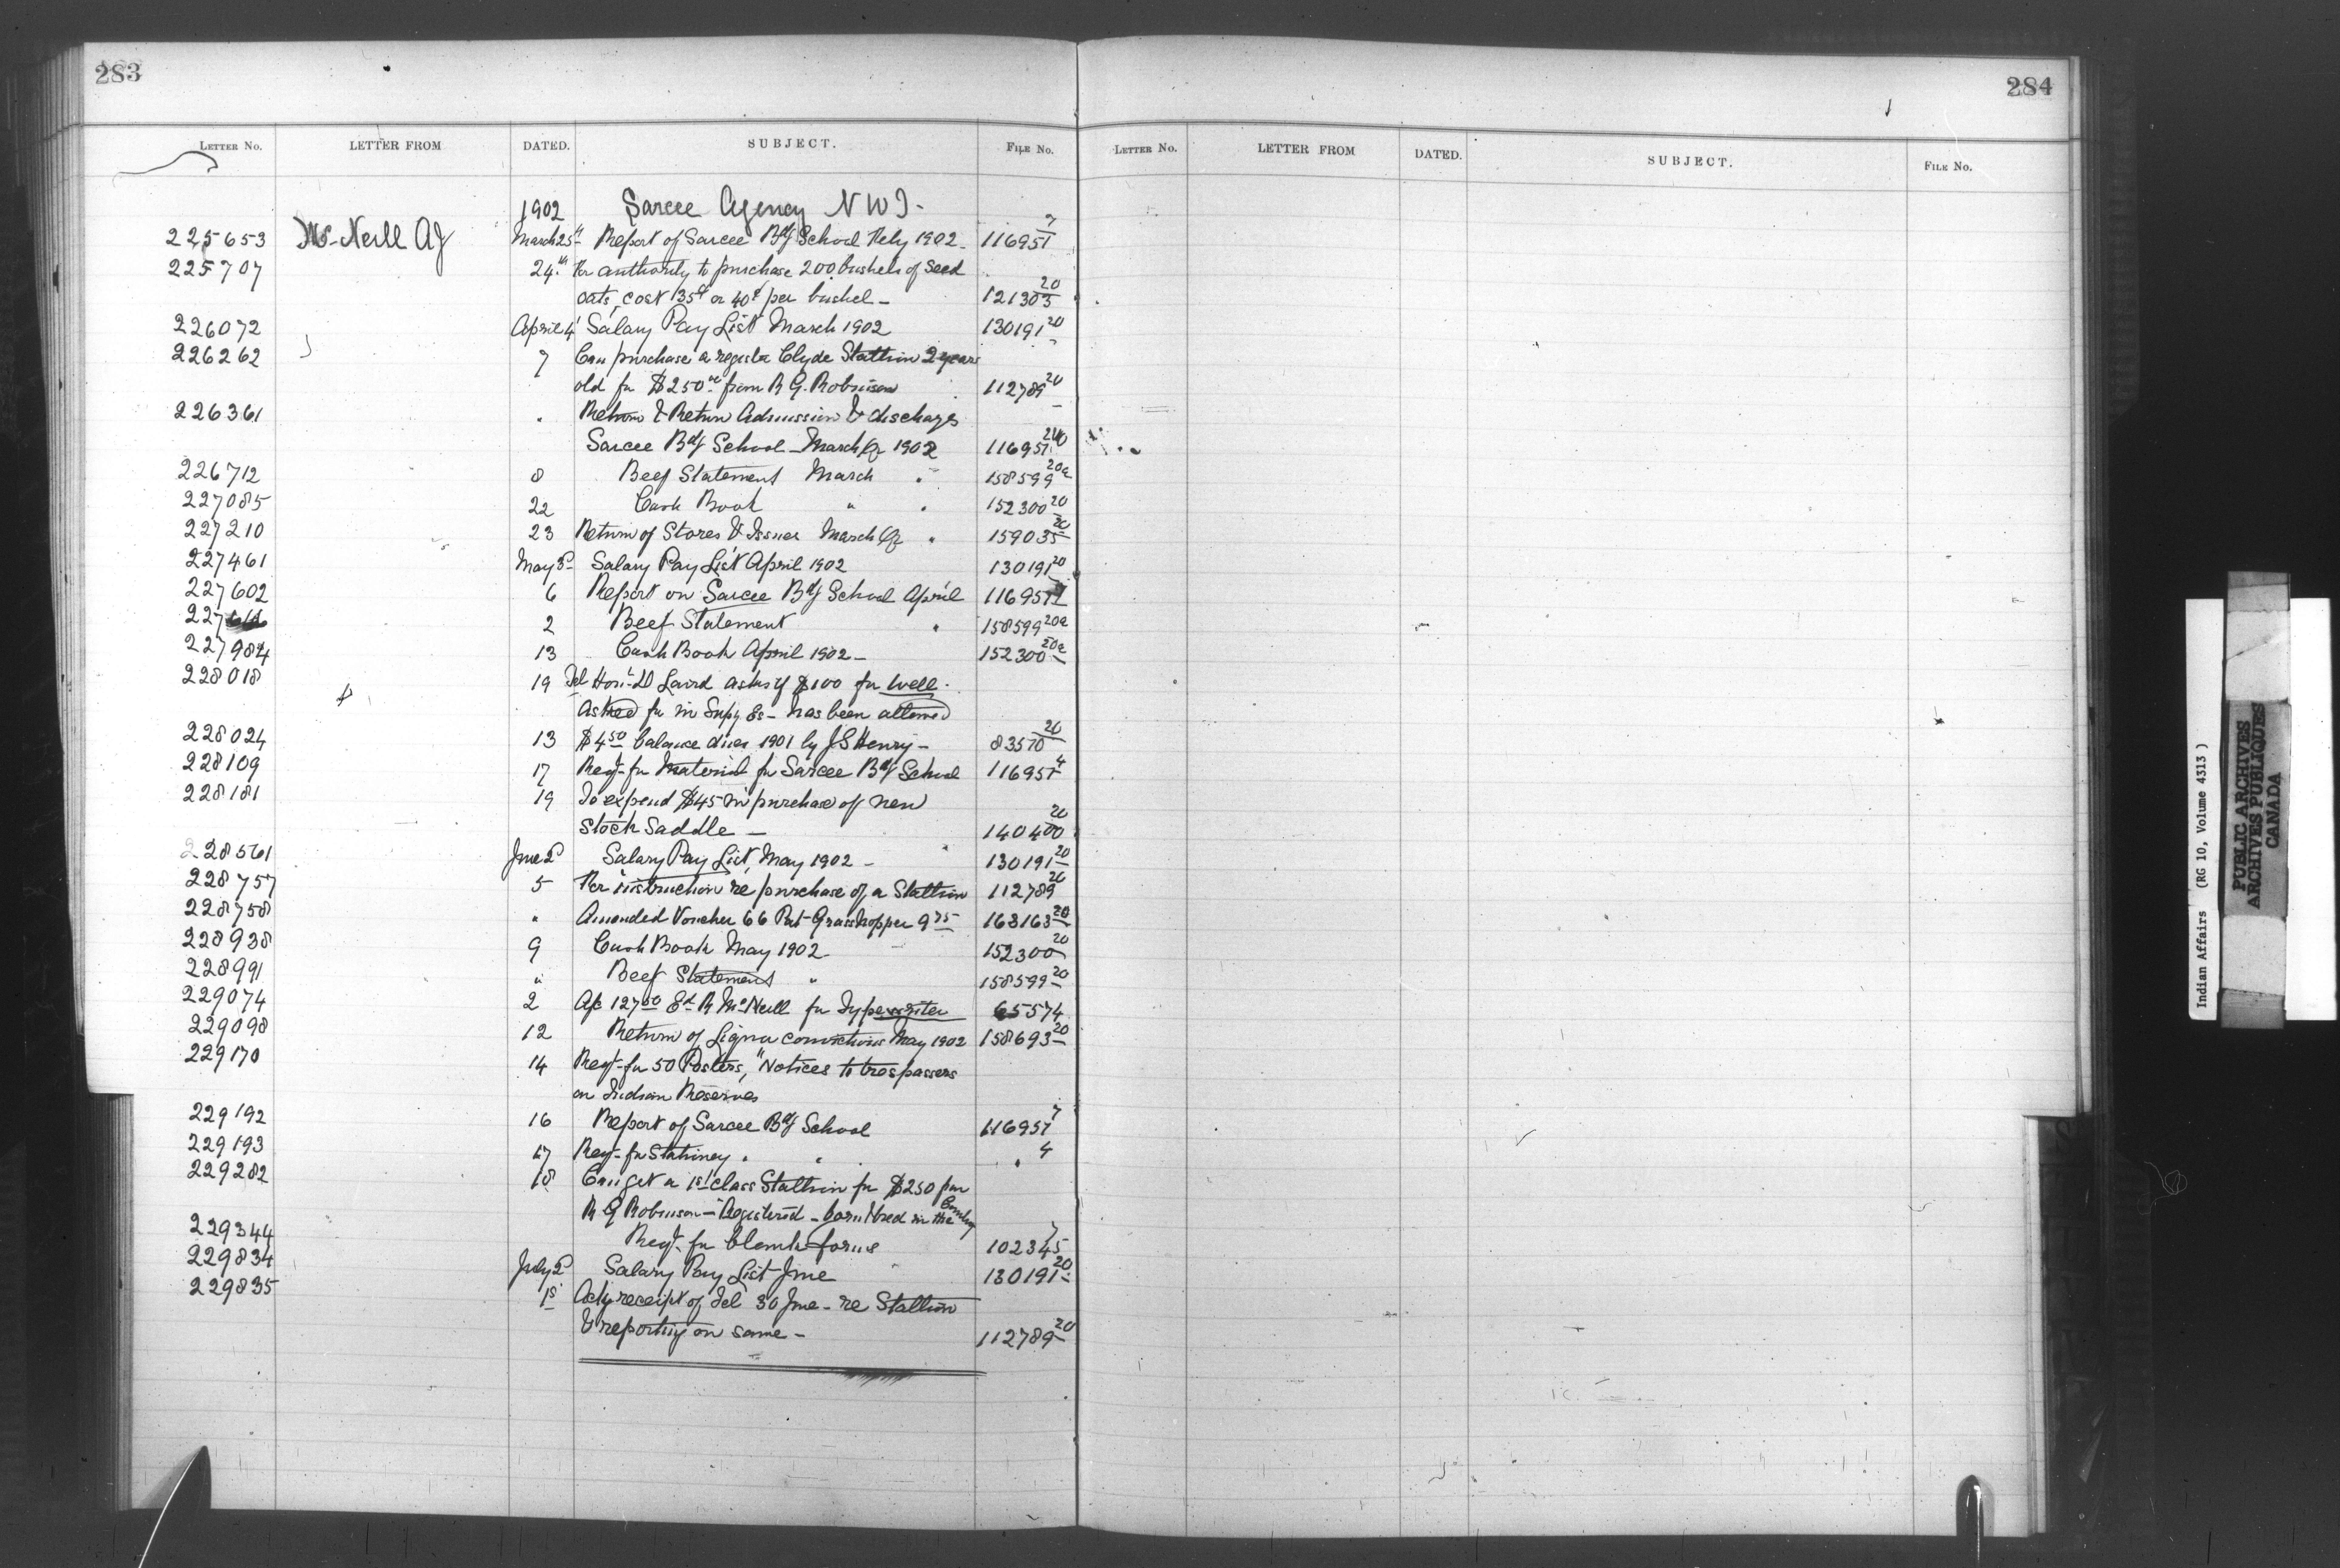 283
284
LETTER No. LETTER FROM DATED. SUBJECT. FILE No.
LETTER No. LETTER FROM DATED. SUBJECT. FILE No.
1902 Sarcee Agency NWT.
225653 McNeill AJ March 25th Report of Sarcee Bdg School Feby 1902. 116951 7
225707 24th For authority to purchase 200 bushels of Seed
oats, cost 35¢ or 40¢ per bushel - 121303 20
226072 April 4 Salary Pay List March 1902 130191 20
226262 7 Can purchase a register Clyde Stallion 2 years
old for $250.00 from R G. Robinson 112789 20
226361 " Return & Return Admission & discharges
Sarcee Bdg School - March Qr 1902 116957
226712 8 Beef Statement March " 158599 20a
227085 22 Cash Book " " 152300 20
227210 23 Return of Stores & Issues March Qr " 159035 20
227461 May 2d Salary Pay List April 1902 130191 20
227602 6 Report on Sarcee Bdg School April 116957
227 2 Beef Statement " 158599 20a
227984 13 Cash Book April 1902 - 152300 20a
228018 19 Tel Hon. D Laird asks if $100 for well.
asked for in Supy Es - has been allowed
228024 13 $4 50 balance dues 1901 by J S Henry - 83570 20
228109 17 Reqt. for material for Sarcee Bdg School 116957 4
228181 19 To expend $45 in purchase of new
Stock Saddle - 140400 20
228561 June 2d Salary Pay List, May 1902 - 130191 20
228757 5 For instruction re purchase of a Stallion 112789 20
228758 " Amended Voucher 66 Pat Grasshopper 9 75 163163 20
228938 9 Cash Book May 1902 152300 20
228991 " Beef Statement " 158599 20
229074 2 A/c 127 50 Ed R McNeill for Typewriter 65574
229098 12 Return of Liquor convictions May 1902 158693 20
229170 14 Reqt. for 50 Posters, "Notices to trespassers
on Indian Reserves
229192 16 Report of Sarcee Bdg School 116957 7
229193 17 Reqt. for Stationery " " " 4
229282 18 Can get a 1st class Stallion for $250 from
R G Robinson - Registered - born & bred in the Country
229344 Reqt. for blank forms 102345 7
229834 July 2d Salary Pay List June 130191 20
229835 1st Ackg receipt of Tel 30 June - re Stallion
& reporting on same - 112789 20
Indian Affairs (RG 10, Volume 4313)
PUBLIC ARCHIVES
ARCHIVES PUBLIQUES
CANADA